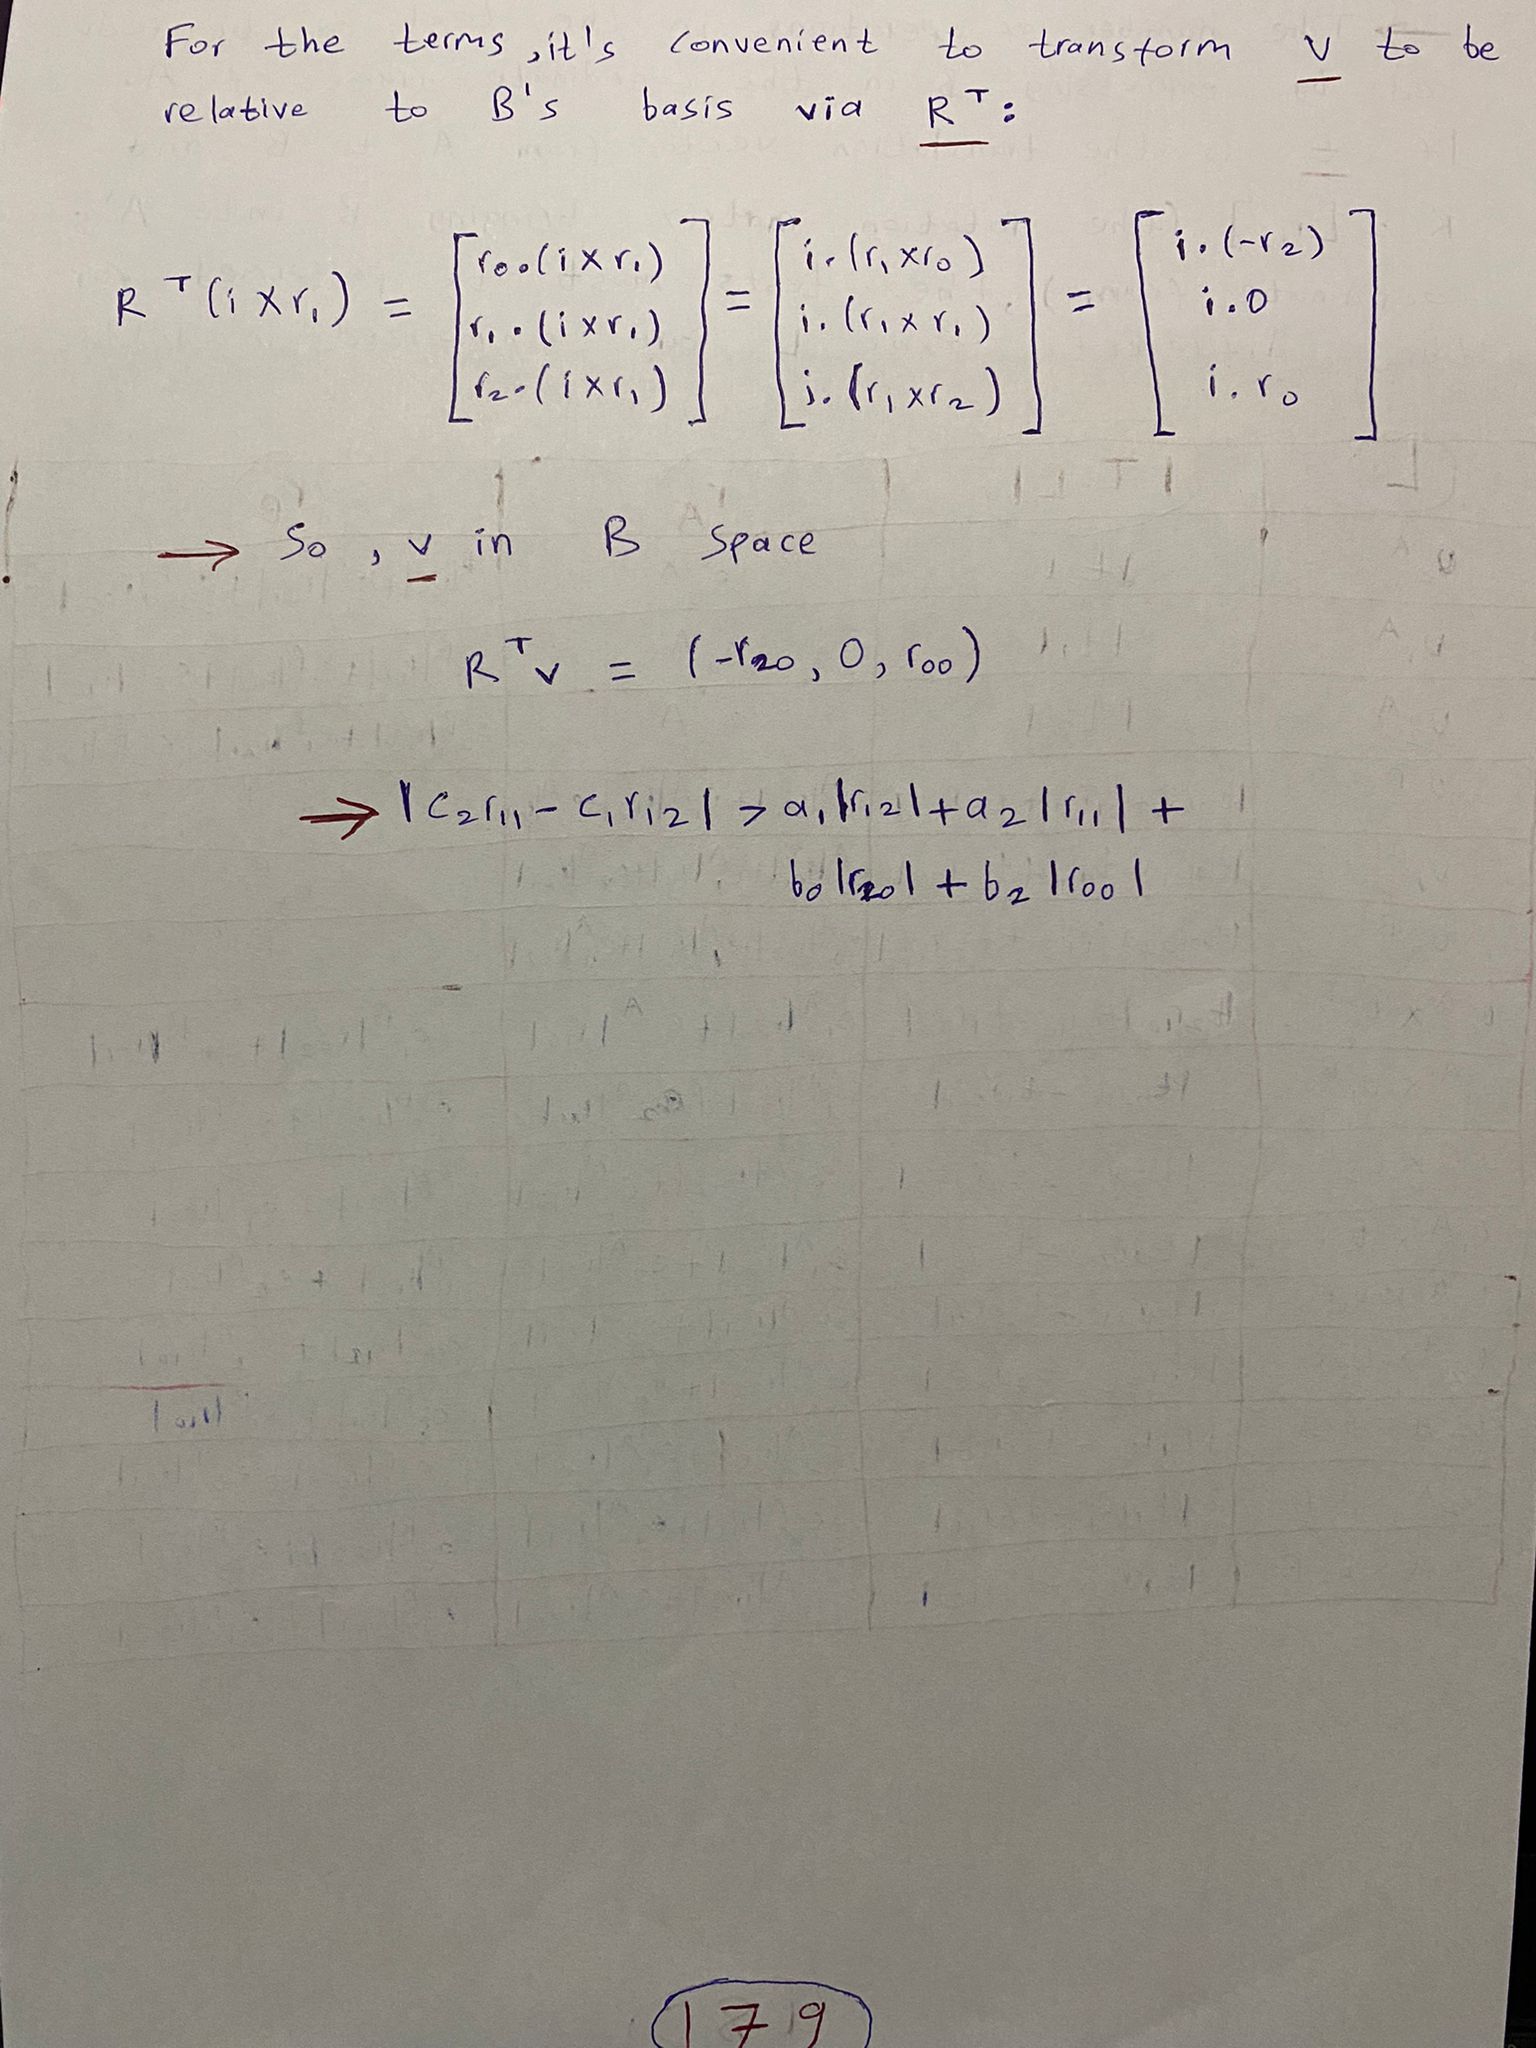 For the terms, it's convenient to transform v to be
relative to B's basis via Rᵀ:
Rᵀ(i×r₁) = [r₀.(i×r₁) r₁.(i×r₁) r₂.(i×r₁)] = [i.(r₁×r₀) i.(r₁×r₁) i.(r₁×r₂)] = [i.(-r₂) i.0 i.r₀]
→ So, v in B space
Rᵀv = (-r₂₀, 0, r₀₀)
→ |c₂r₁₁ - c₁r₁₂| > a₁|r₁₂| + a₂|r₁₁| +
b₀|r₂₀| + b₂|r₀₀|
179